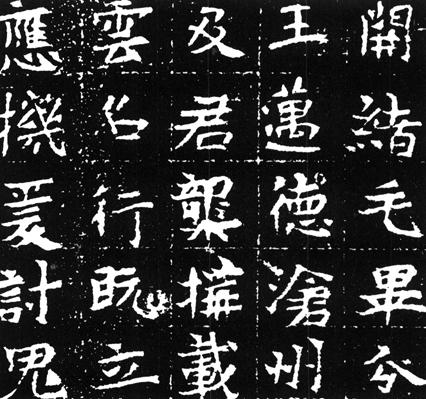 開緒毛畢分
王邁德滄州
及君襲載
雲名行既立
應機爰討